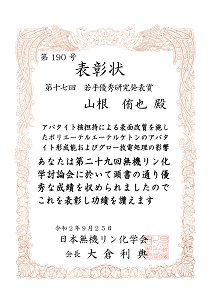 第190号
表彰状
第十七回 若手優秀研究発表賞
山根 侑也 殿
アパタイト核担持による表面改質を施し
たポリエーテルエーテルケトンのアパタ
イト形成能およびグロー放電処理の影響
あなたは第二十九回無機リン化
学討論会に於いて頭書の通り優
秀な成績を収められましたので
これを表彰し功績を讃えます
令和2年9月25日
日本無機リン化学会
会長 大倉利典